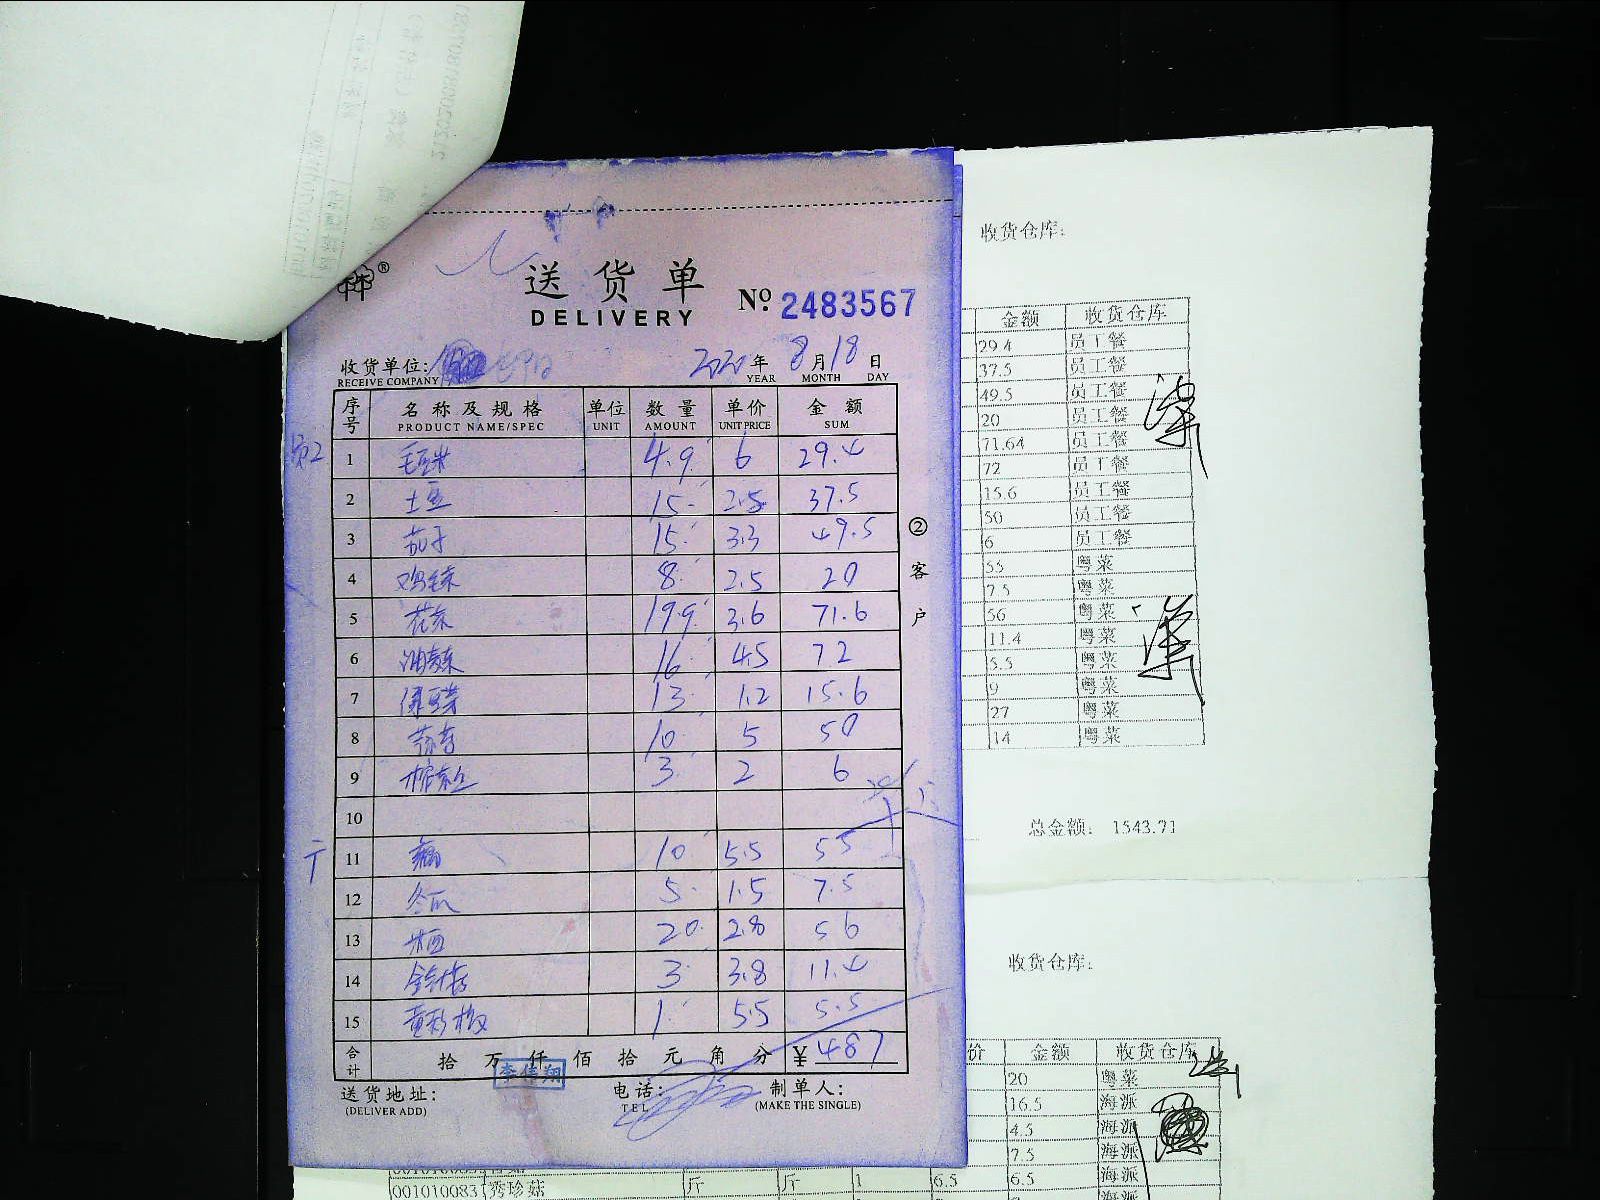 送货单
DELIVERY
№: 2483567
收货单位:
RECEIVE COMPANY
2020年8月18日
YEAR MONTH DAY
序号 名称及规格 单位 数量 单价 金额
PRODUCT NAME/SPEC UNIT AMOUNT UNIT PRICE SUM
1 毛豆米 4.9 6 29.4
2 土豆 15 2.5 37.5
3 茄子 15 3.3 49.5
4 鸡毛菜 8 2.5 20
5 花菜 19.9 3.6 71.6
6 油麦菜 16 4.5 72
7 绿豆芽 13 1.2 15.6
8 蒜苔 10 5 50
9 榨菜丝 3 2 6
10
11 10 5.5 55
12 冬瓜 5 1.5 7.5
13 20 2.8 56
14 金针菇 3 3.8 11.4
15 1 5.5 5.5
合计 拾万仟佰拾元角分 ¥ 487
李佳翔
送货地址: 电话: 制单人:
(DELIVER ADD) TEL (MAKE THE SINGLE)
②客户
收货仓库:
金额 收货仓库
29.4 员工餐
37.5 员工餐
49.5 员工餐
20 员工餐
71.64 员工餐
72 员工餐
15.6 员工餐
50 员工餐
6 员工餐
55 粤菜
7.5 粤菜
56 粤菜
11.4 粤菜
5.5 粤菜
9 粤菜
27 粤菜
14 粤菜
总金额: 1543.71
收货仓库:
价 金额 收货仓库
20 粤菜
16.5 海派
4.5 海派
7.5 海派
6.5 6.5 海派
001010083 秀珍菇 斤 斤 1